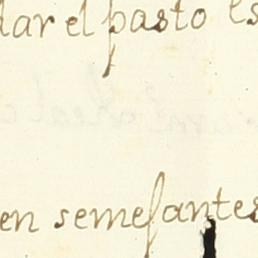 dar el pasto es
en semejantes